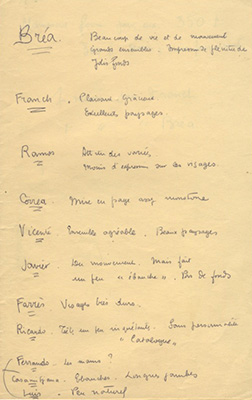 Bréa. Beaucoup de vie et de mouvement
Grands ensembles. Impression de plénitude
Jolis fonds
Franch. Plaisant. Gracieux.
Excellents paysages.
Ramos Attitudes variées,
moins d'expression sur les visages.
Correa Mise en page assez monotone
Vicente Ensemble agréable. Beaux paysages
Javier. Du mouvement. Mais fait
un peu "ébauche". Pas de fonds
Farrès Visages très durs.
Ricardo. Tête un peu inquiétante. Sans personnalité
"Catalogue"
Fernando. Les mains?
Casamijana. Ebauches. Longues jambes
Luys. Peu naturel